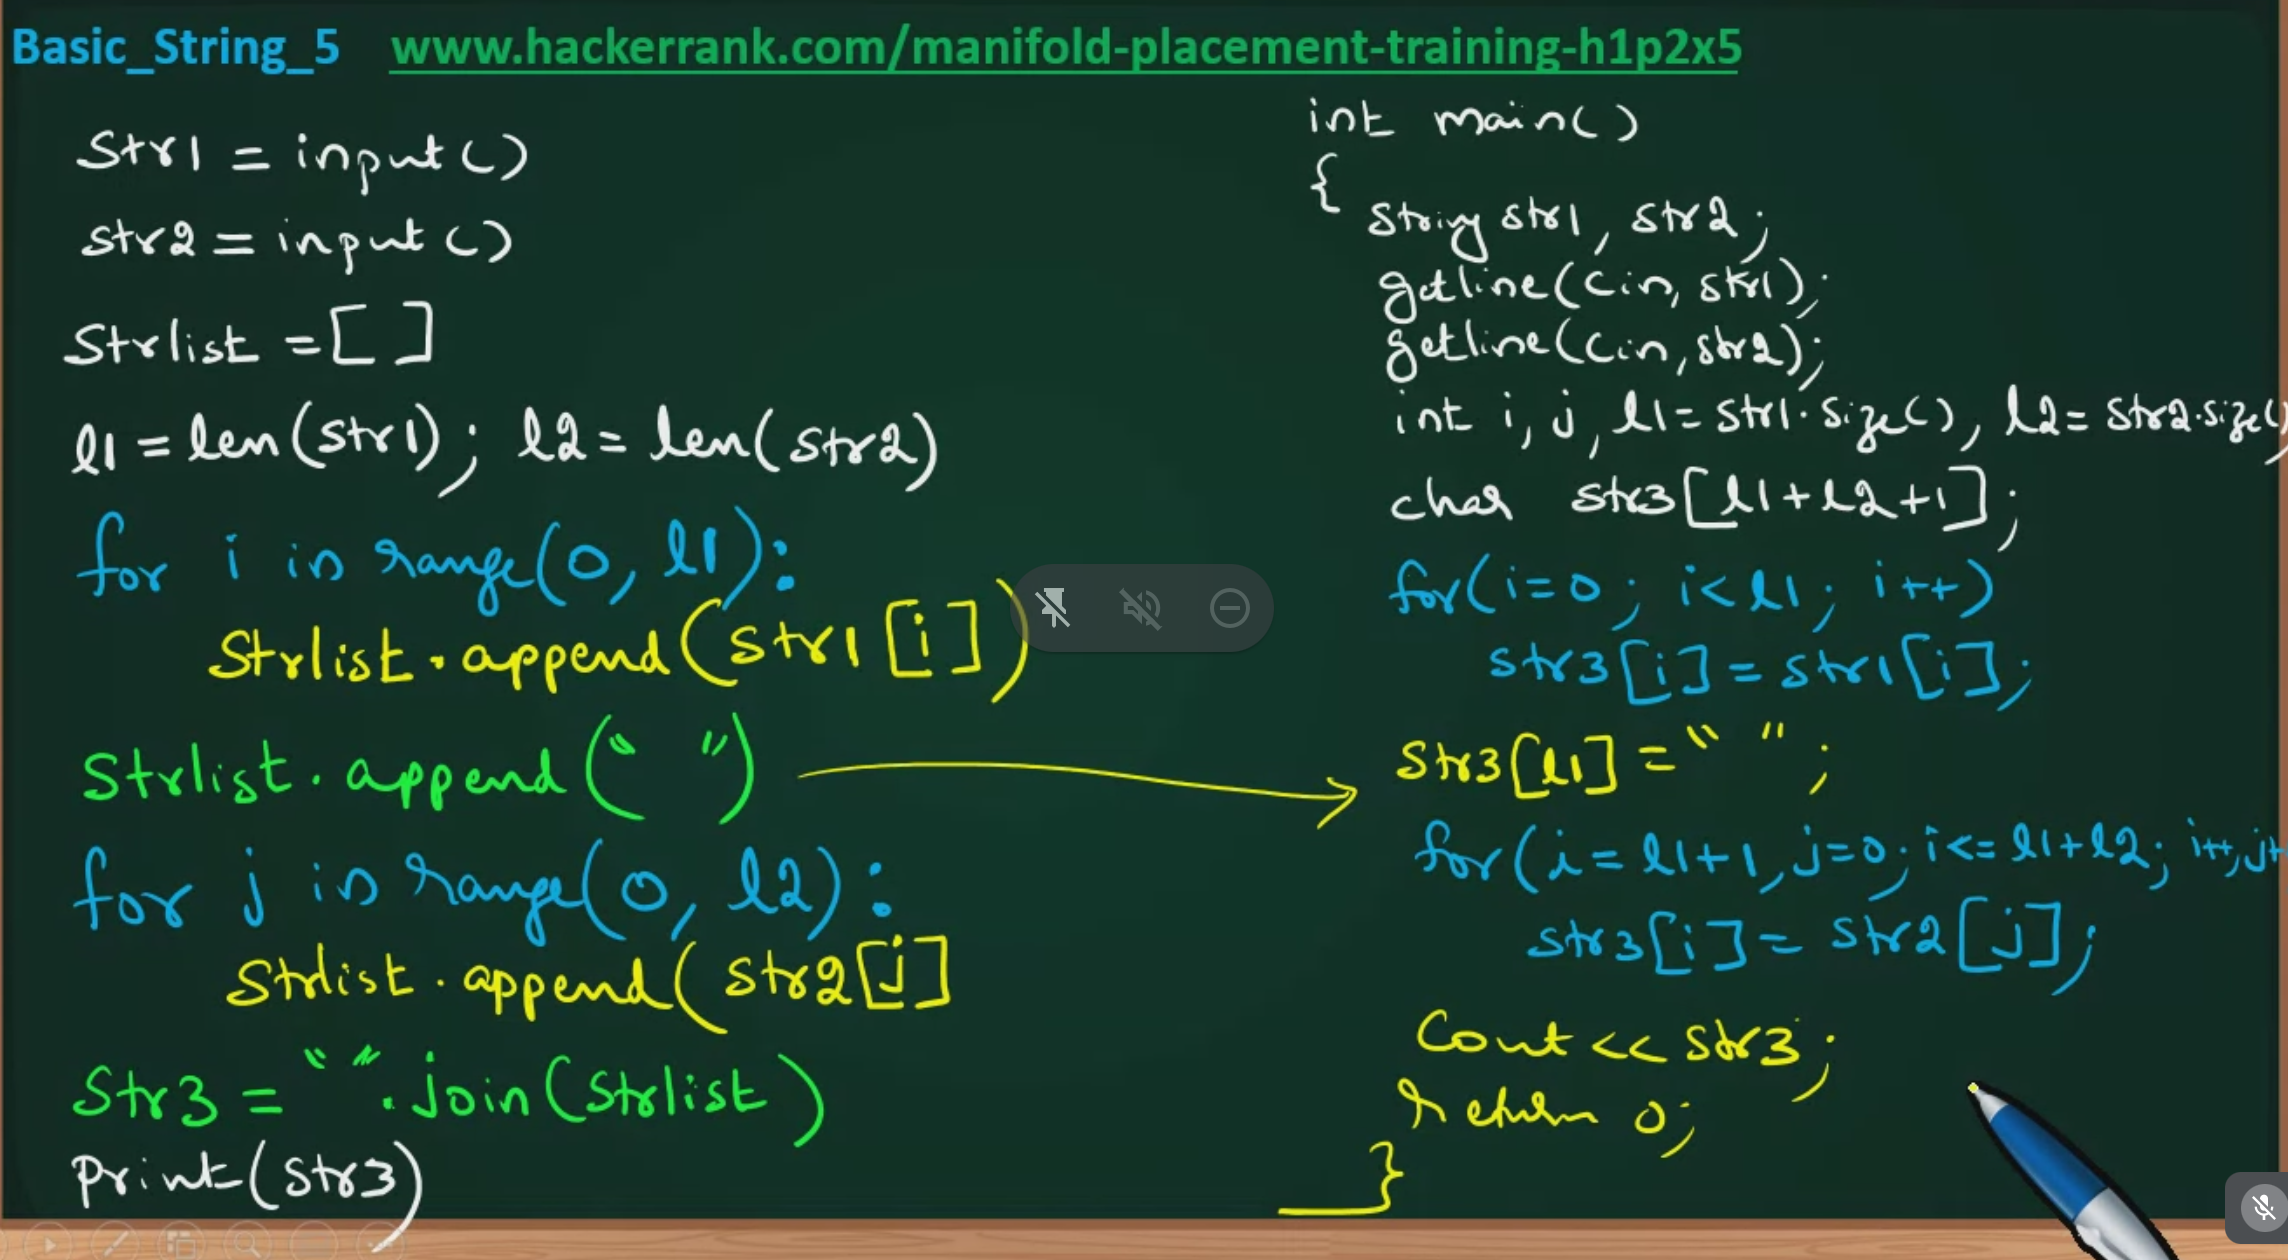 Basic_String_5 www.hackerrank.com/manifold-placement-training-h1p2x5
Str1 = input()
str2 = input()
Strlist = [ ]
l1 = len(str1); l2 = len(str2)
for i in range(0, l1):
Strlist.append(str1[i])
Strlist.append(" ")
for j in range(0, l2):
Strlist.append(str2[j]
Str3 = "".join(Strlist)
Print(str3)
int main()
{
string str1, str2;
getline(cin, str1);
getline(cin, str2);
int i, j, l1=str1.size(), l2=str2.size()
char str3[l1+l2+1];
for(i=0; i<l1; i++)
str3[i]=str1[i];
Str3[l1]=" ";
for(i=l1+1, j=0; i<=l1+l2; i++, j+
str3[i]=str2[j];
Cout << str3;
return 0;
}